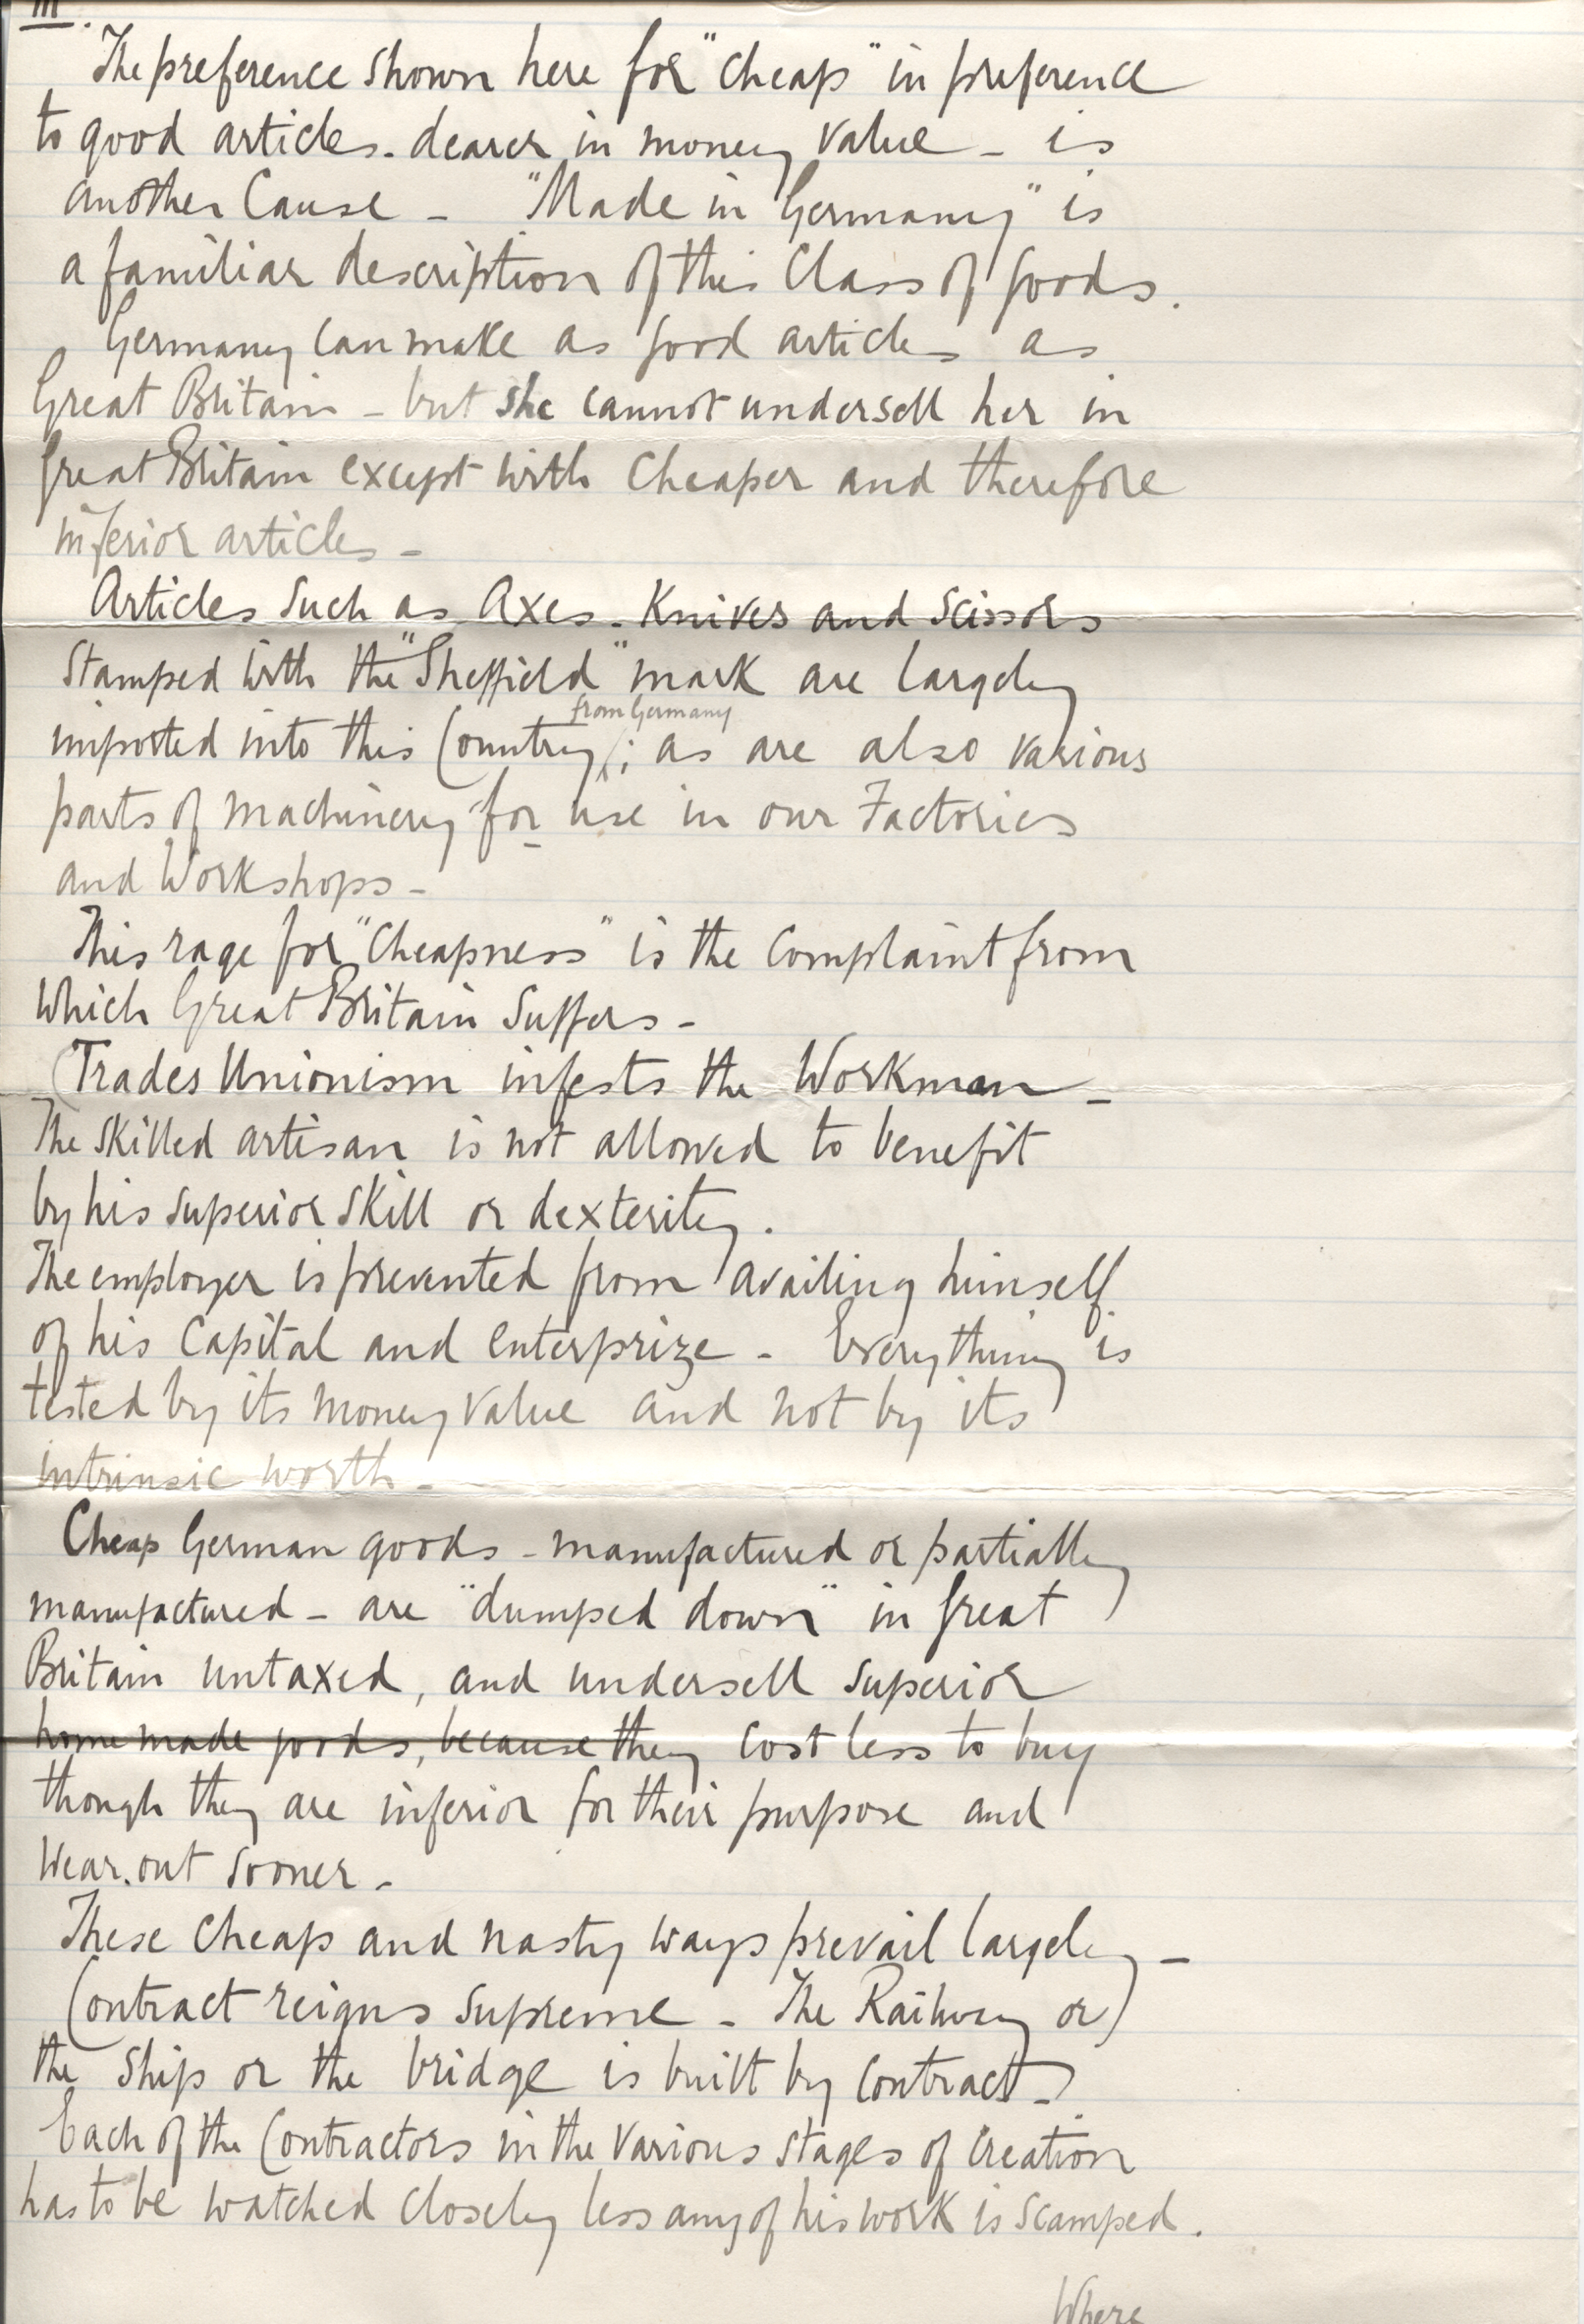 III.
The preference shown here for "cheap" in preference
to good articles. dearer in money value - is
another Cause - "Made in Germany" is
a familiar description of this Class of goods.
Germany can make as good articles as
Great Britain - but she cannot undersell her in
Great Britain except with Cheaper and therefore
inferior articles -
Articles such as Axes. Knives and Scissors
Stamped with the "Sheffield" mark are largely
from Germany
imported into this Country; as are also various
parts of machinery for use in our Factories
and Workshops -
This rage for "Cheapness" is the Complaint from
Which Great Britain Suffers -
(Trades Unionism infests the Workman -
The Skilled artisan is not allowed to benefit
by his superior Skill or dexterity.
The employer is prevented from availing himself
of his Capital and enterprize - Everything is
tested by its money value and not by its
intrinsic worth -
Cheap German goods - manufactured or partially
manufactured - are "dumped down" in Great
Britain untaxed, and undersell superior
home made goods, because they cost less to buy
though they are inferior for their purpose and
Wear. out sooner -
These Cheap and nasty ways prevail largely -
Contract reigns supreme - The Railway or
the Ship or the bridge is built by Contract -
Each of the Contractors in the various stages of Creation
has to be watched closely less any of his work is scamped.
Where